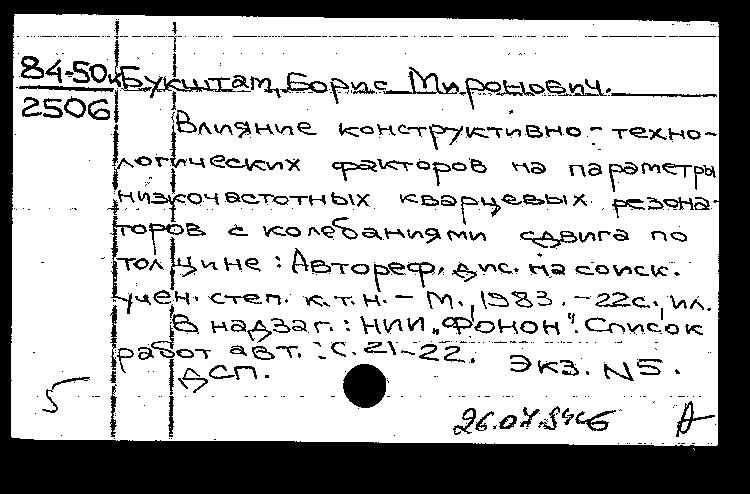 84-50к
2506
Букштам, Борис Миронович.
Влияние конструктивно-техно-
логических факторов на параметры
низкочастотных кварцевых резона-
торов с колебаниями сдвига по
толщине: Автореф. дис. на соиск.
учен. степ. к.т.н. - М., 1983. - 22с., ил.
В надзаг.: НИИ „Фонон". Список
работ авт.: С. 21-22.
ДСП.
Экз. N5.
5
А